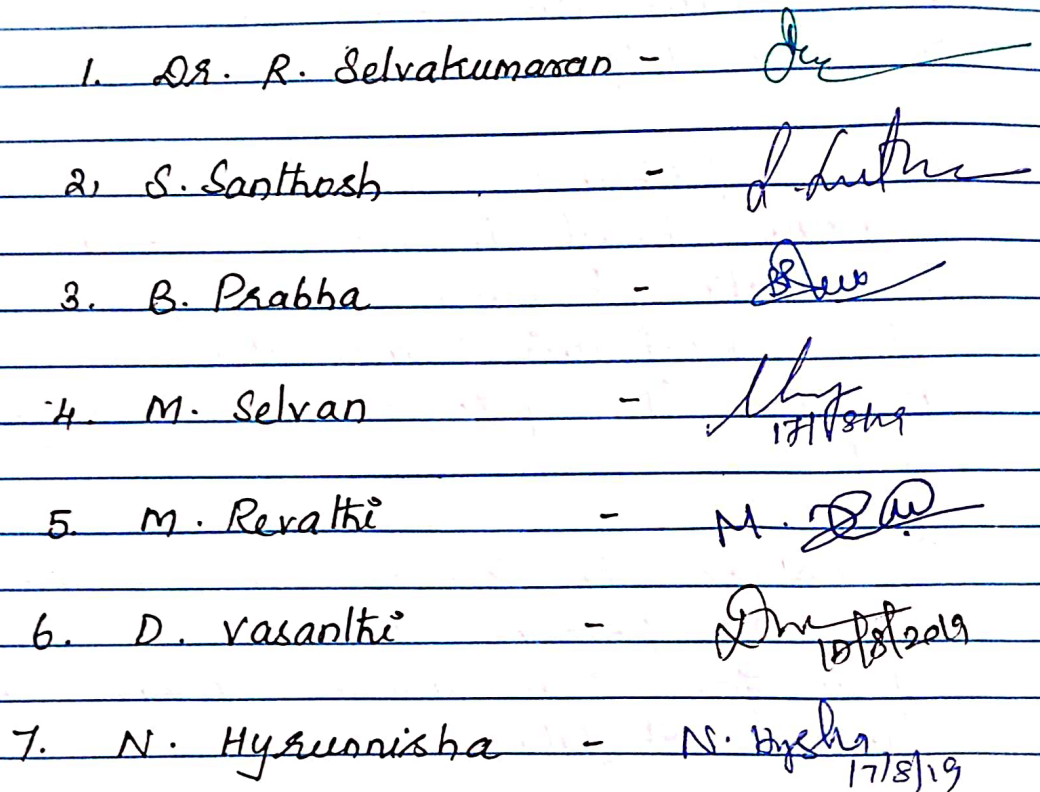 1. Dr. R. Selvakumaran -
2, S. Santhosh -
3. B. Prabha -
4. M. Selvan - 17/8/19
5. M. Revathi - M.
6. D. Vasanthi - /8/2019
7. N. Hyrunnisha - N. 17/8/19